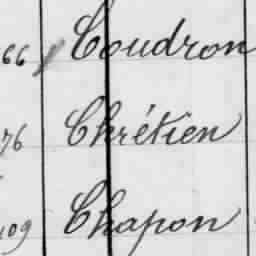 66 Coudron
76 Chrétien
109 Chapon